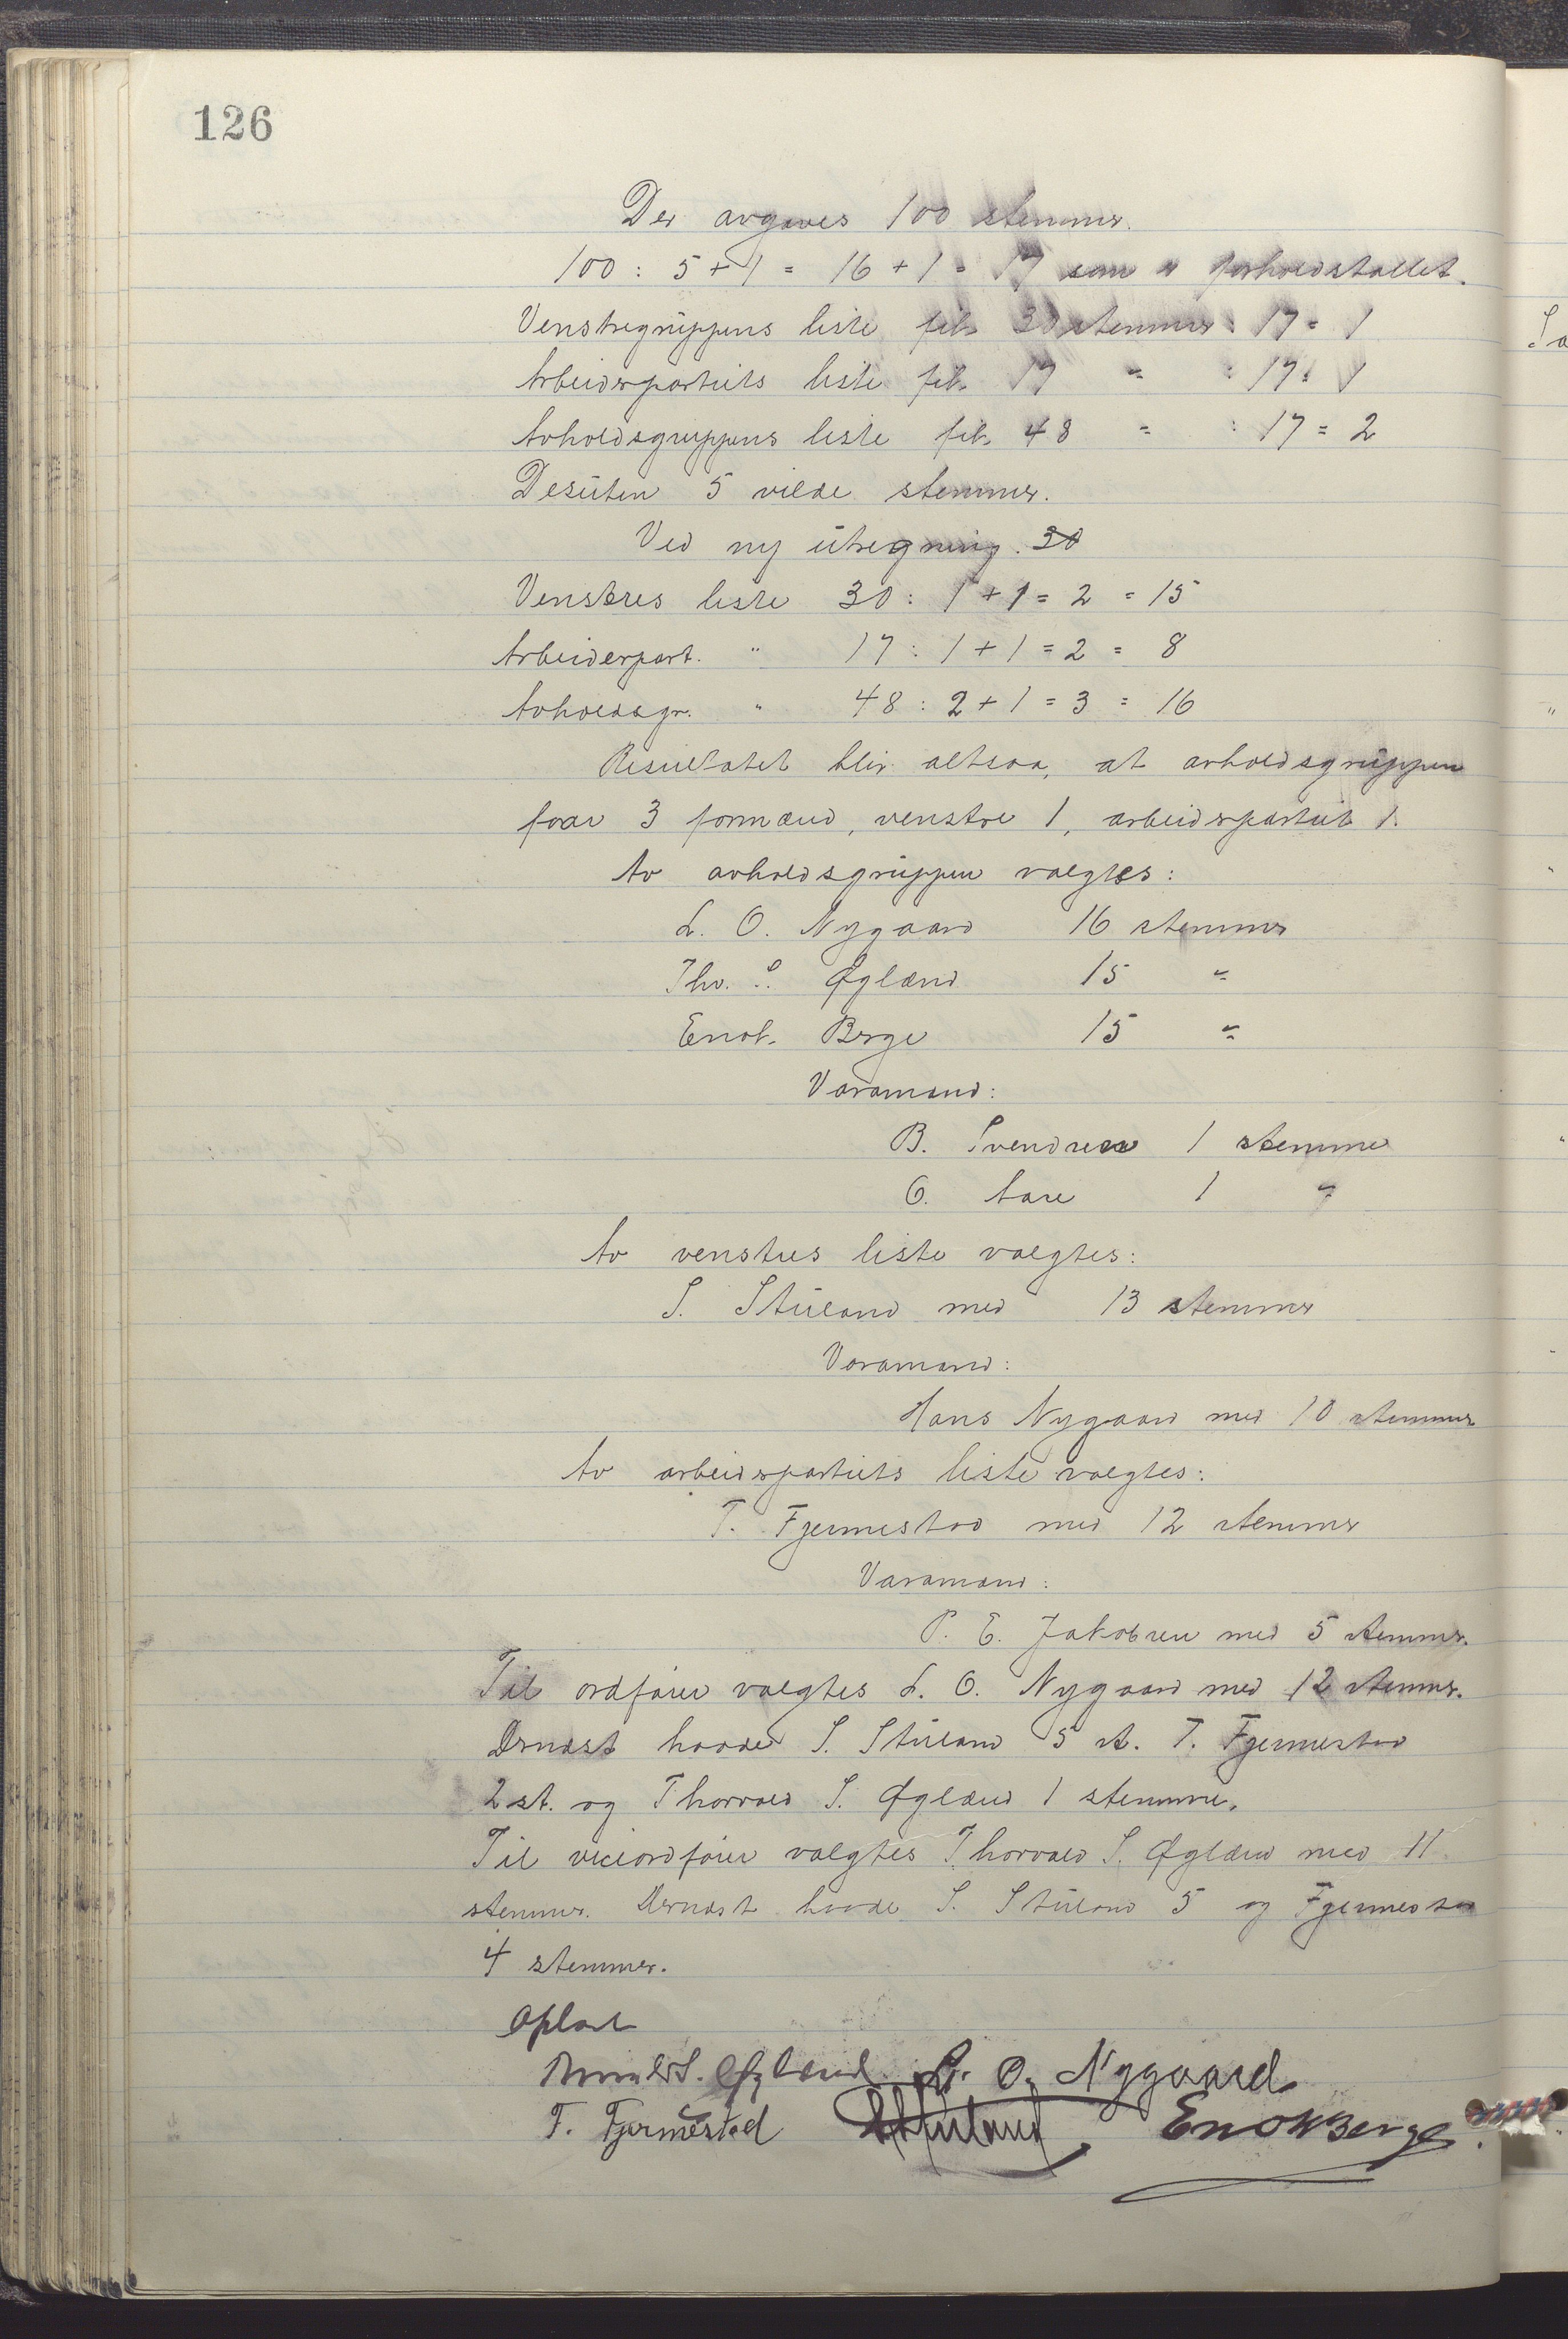 126
Der avgaves 100 stemmer.
100 : 5 + 1 = 16 + 1 = 17 som er forholdstallet.
Venstregruppens liste fik 30 stemmer : 17 = 1
Arbeiderpartiets liste fik 17 " : 17 = 1
Avholdsgruppens liste fik 48 " : 17 = 2
Desuten 5 vilde stemmer.
Ved ny utregning. 30
Venstres liste 30 : 1 + 1 = 2 = 15
Arbeiderpart. " 17 : 1 + 1 = 2 = 8
Avholdsgr. " 48 : 2 + 1 = 3 = 16
Resultatet blir altsaa, at avholdsgruppen
faar 3 formænd, venstre 1, arbeiderpartiet 1.
Av avholdsgruppen valgtes:
L. O. Nygaard 16 stemmer
Thv. S. Øglænd 15 "
Enok Berge 15 "
Varamænd:
B. Svendsen 1 stemme
O. Aase 1 "
Av venstres liste valgtes:
S. Stueland med 13 stemmer
Varamand:
Hans Nygaard med 10 stemmer
Av arbeiderpartiets liste valgtes:
T. Fjermestad med 12 stemmer
Varamand:
P. E. Jakobsen med 5 stemmer.
Til ordfører valgtes L. O. Nygaard med 12 stemmer.
Dernæst havde S. Stueland 5 st. T. Fjermestad
2 st. og Thorvald S. Øglænd 1 stemme.
Til viceordfører valgtes Thorvald S. Øglænd med 11
stemmer. Dernæst havde S. Stueland 5 og Fjermestad
4 stemmer.
Oplæst
S. Øglænd L. O. Nygaard
T. Fjermestad S Stueland Enok Berge